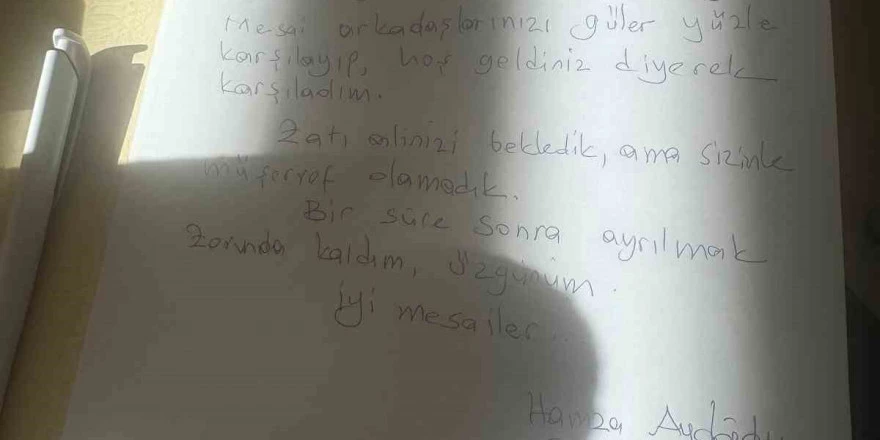 Mesai arkadaşlarınızı güler yüzle
karşılayıp, hoş geldiniz diyerek
karşıladım.
Zatı alinizi bekledik, ama sizinle
müşerref olamadık.
Bir süre sonra ayrılmak
zorunda kaldım, üzgünüm.
iyi mesailer..
Hamza